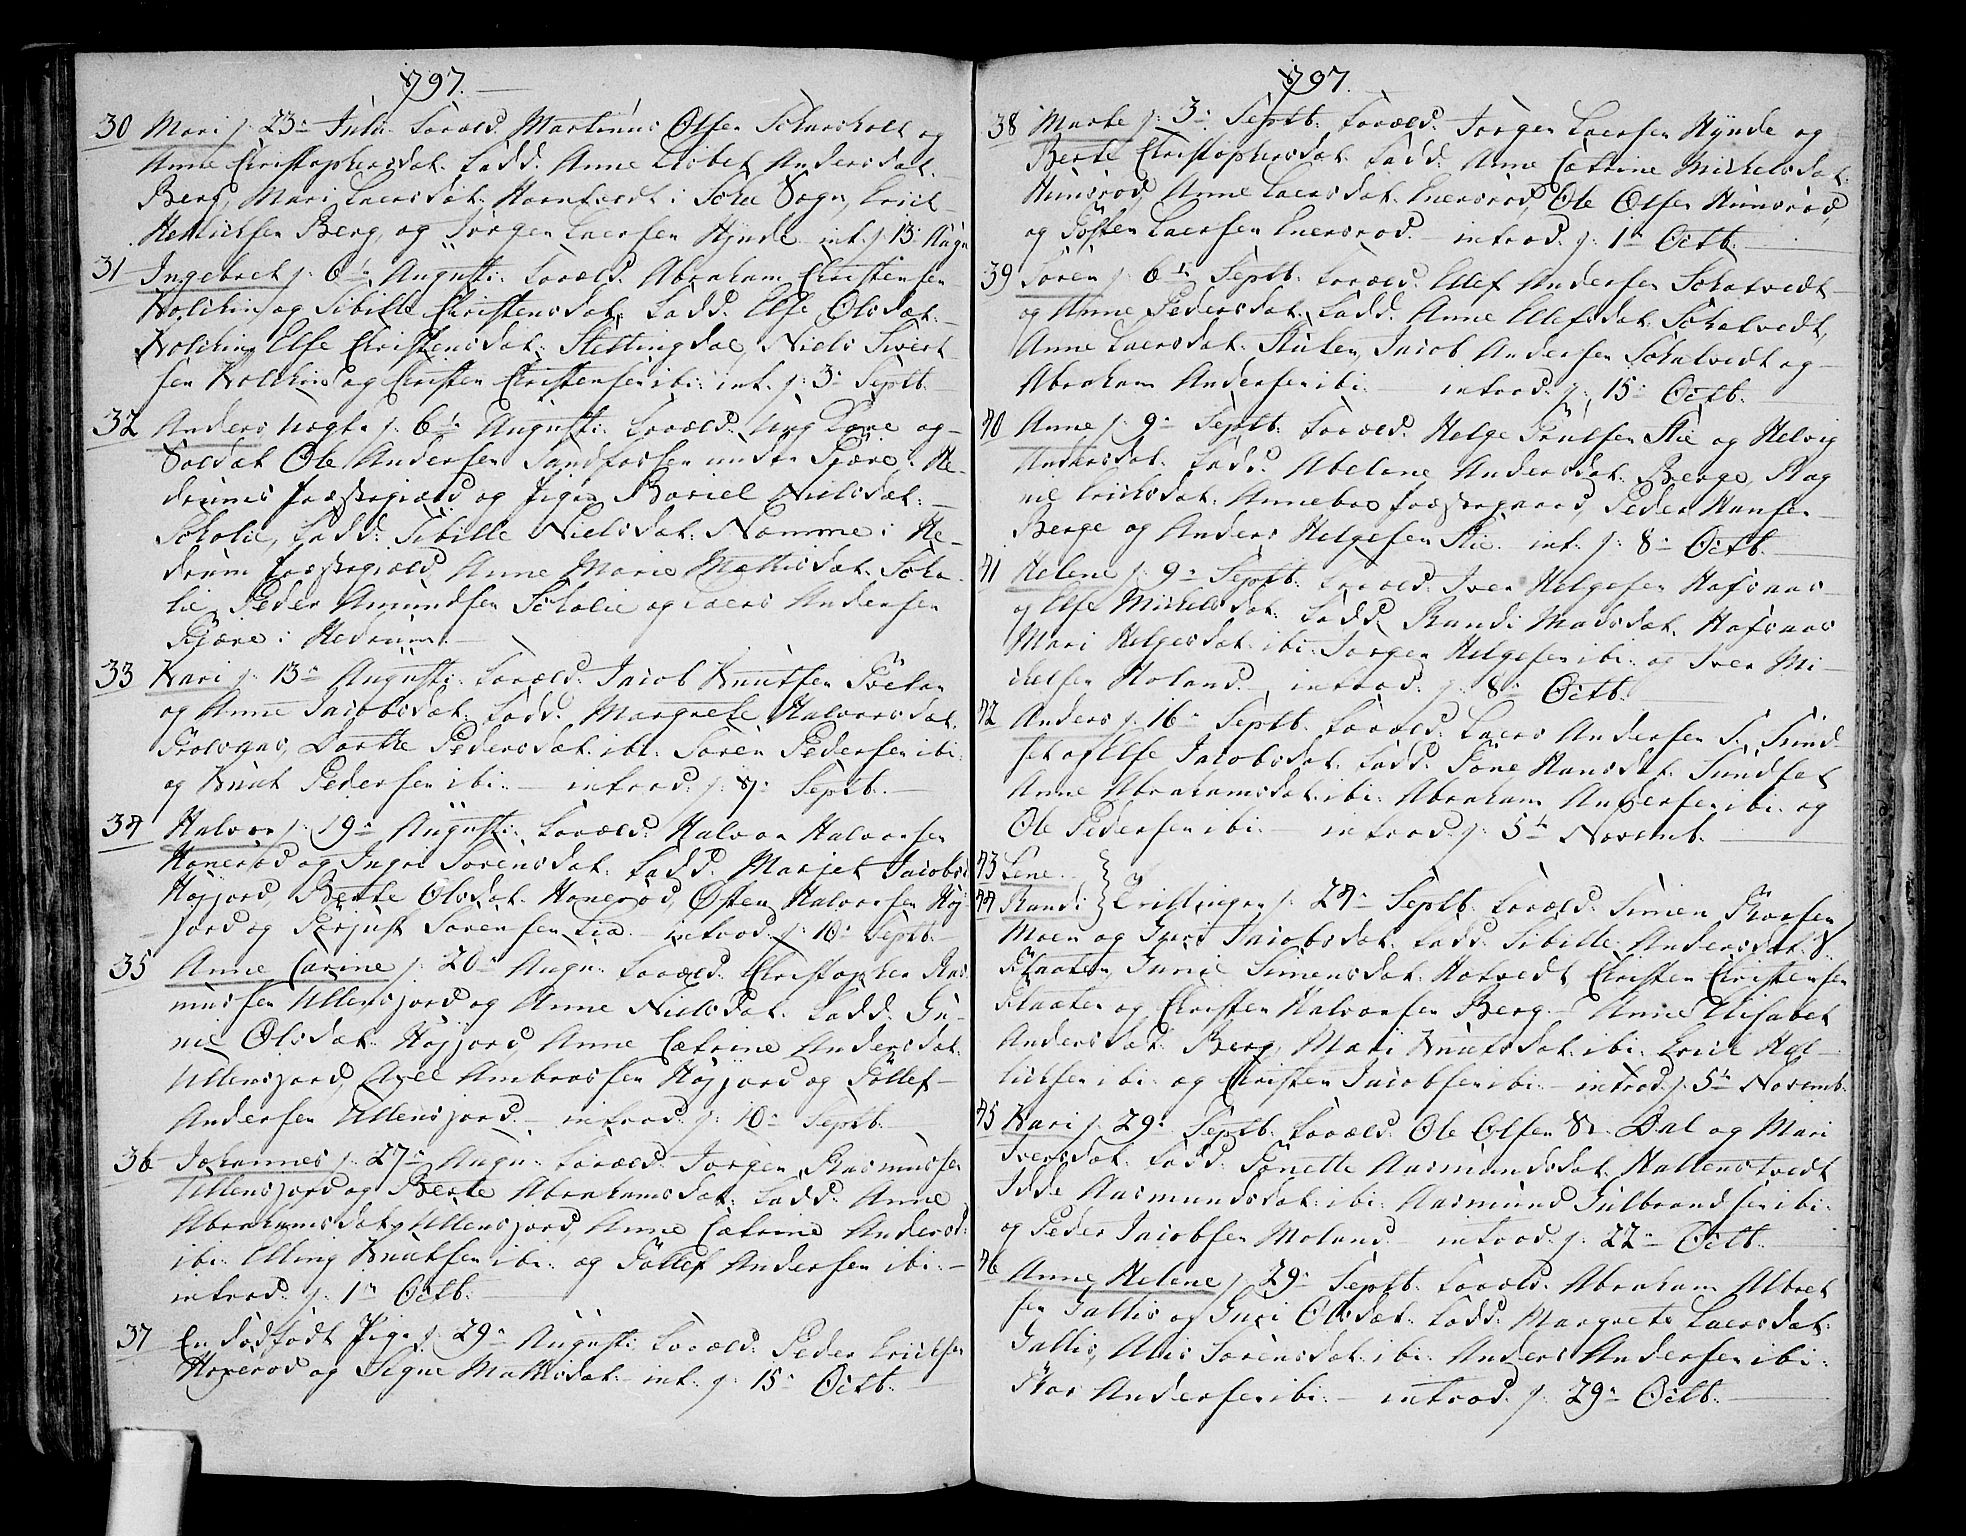 797.
30 Mari p. 23de Julii. Foræld. Martinus Olsen Schiarsholt og
Anne Christophersdat. Fadd. Anne Lisbet Andersdat.
Berg, Mari Laersdat. Hientvedt i Sche Sogn, Erich
Henrichsen Berg, og Jørgen Laersen Hynde int. p. 13 Augu
31 Ingebret p. 6te Augusti. Foræld. Abraham Christensen
Holchin og Sibille Christensdat. Fadd. Else Olsdat.
Holchin, Else Christensdat. Stettingdal, Niels Sivert
sen Holchin og Christen Christensen ibi. int. p. 3. Septb.
32 Anders uægte p. 6te Augusti. Foræld. Ung Karl og
Soldat Ole Andersen Sandfossen under Kjære i He-
drums Præstegield og Pigen Boriel Nielsdat.
Scholie, Fadd. Sibille Nielsdat. Namme i He-
drum Præstegield, Anne Marie Mathisdat. Scho-
lie, Peder Amundsen Scholie og Laers Andersen
Kjære i Hedrum.
33 Kari p. 13de Augusti. Foræld. Jacob Knutsen
og Anne Jacobsdat. Fadd. Margrete Halvorsdat.
Trolsaas, Dorthe Pedersdat. ibi. Søren Pedersen ibi.
og Knut Pedersen ibi. introd. p. 8. Septb.
34 Halvor p. 19de Augusti. Foræld. Halvor Halvorsen
Honerød og Ingri Sørensdat. Fadd. Marjet Jacobsd
Høijord, Berte Olsdat. Honerød, Østen Halvorsen Høi-
jord og Torjust Sørensen Lia. introd. p. 10. Septb.
35 Anne Carine p. 20de Augu. Foræld. Christopher Ras-
mussen Ullensjord og Anne Nielsdat. Fadd. Gu-
nil Olsdat. Høijord, Anne Catrine Andersdat.
Ullensjord, Axel Ambrossen Høijord og Tollef
Andersen Ullensjord. introd. p. 10. Septb.
36 Johannes p. 27de Augu. Foræld. Jørgen Rasmussen
Ullensjord og Berte Abrahamsdat. Fadd. Anne
Abrahamsdat. Ullensjord, Anne Catrine Andersd.
ibi. Elling Knutsen ibi. og Tollef Andersen ibi.
introd. p. 1ste Octb.
37 En dødfødt Pige p. 29de Augusti. Foræld. Peder Erichsen
Honerød og Signe Mathisdat. int. p. 15. Octb.
797.
38 Marte p. 3. Septb. Foræld. Jørgen Laersen Hynde og
Berte Christophersdat. Fadd. Anne Catrine Michelsdat.
Himsrød, Anne Laersdat. Enersrød, Ole Olsen Himsrød,
og Østen Laersen Enersrød. introd. p. 1ste Octb.
39 Søren p. 6te Septb. Foræld. Ellef Andersen Schatvedt
og Anne Pedersdat. Fadd. Anne Ellefsdat. Schatvedt,
Anne Laersdat. Stulen, Jacob Andersen Schatvedt og
Abraham Andersen ibi. introd. p. 15. Octb.
40 Anne p. 9. Septb. Foræld. Helge Trulsen Stie og Helvig
Andersdat. Fadd. Abelone Andersdat. Berge, Rag
nil Erichsdat. Anneboe Præstegaard, Peder Hansen
Berge og Anders Helgesen Stie. int. p. 8. Octb.
41 Helene p. 9. Septb. Foræld. Iver Helgesen Hafsaas
og Else Michelsdat. Fadd. Randi Madsdat. Hafsaas
Mari Helgesdat. ibi. Jørgen Helgesen ibi. og Iver Mi-
chelsen Holand. introd. p. 8. Octb.
42 Anders p. 16. Septb. Foræld. Laers Andersen S. Sund-
set og Else Jacobsdat. Fadd. Tone Hansdat. Sundset
Anne Abrahamsdat. ibi. Abraham Andersen ibi. og
Ole Pedersen ibi. introd. p. 5te Novemb.
43 Lene.
44 Randi } Tvillinger p. 24. Septb. Foræld. Simen Roarsen
Moen og Guri Jacobsdat. Fadd. Sibille Andersdat.
Plaaten, Gunil Simensdat. Hotvedt, Christen Christensen
Plaaten og Christen Halvorsen Berg. Anne Elisabet
Andersdat. Berg, Mari Knutsdat. ibi. Erich Hen-
richsen ibi. og Christen Jacobsen ibi. introd. p. 5te Novemb.
45 Kari p. 29. Septb. Foræld. Ole Olsen S. Dal og Mari
Iversdat. Fadd. Tonette Aasmundsdat. Hallenstvedt
Idde Aasmundsdat. ibi. Aasmund Gulbrandsen ibi.
og Peder Jacobsen Moland. introd. p. 22. Octb.
46 Anne Helene p. 29. Septb. Foræld. Abraham Albret
sen Gallis og Guri Olsdat. Fadd. Margrete Laersdat.
Gallis, Alis Sørensdat. ibi. Anders Andersen ibi.
Roar Andersen ibi. introd. p. 29. Octb.